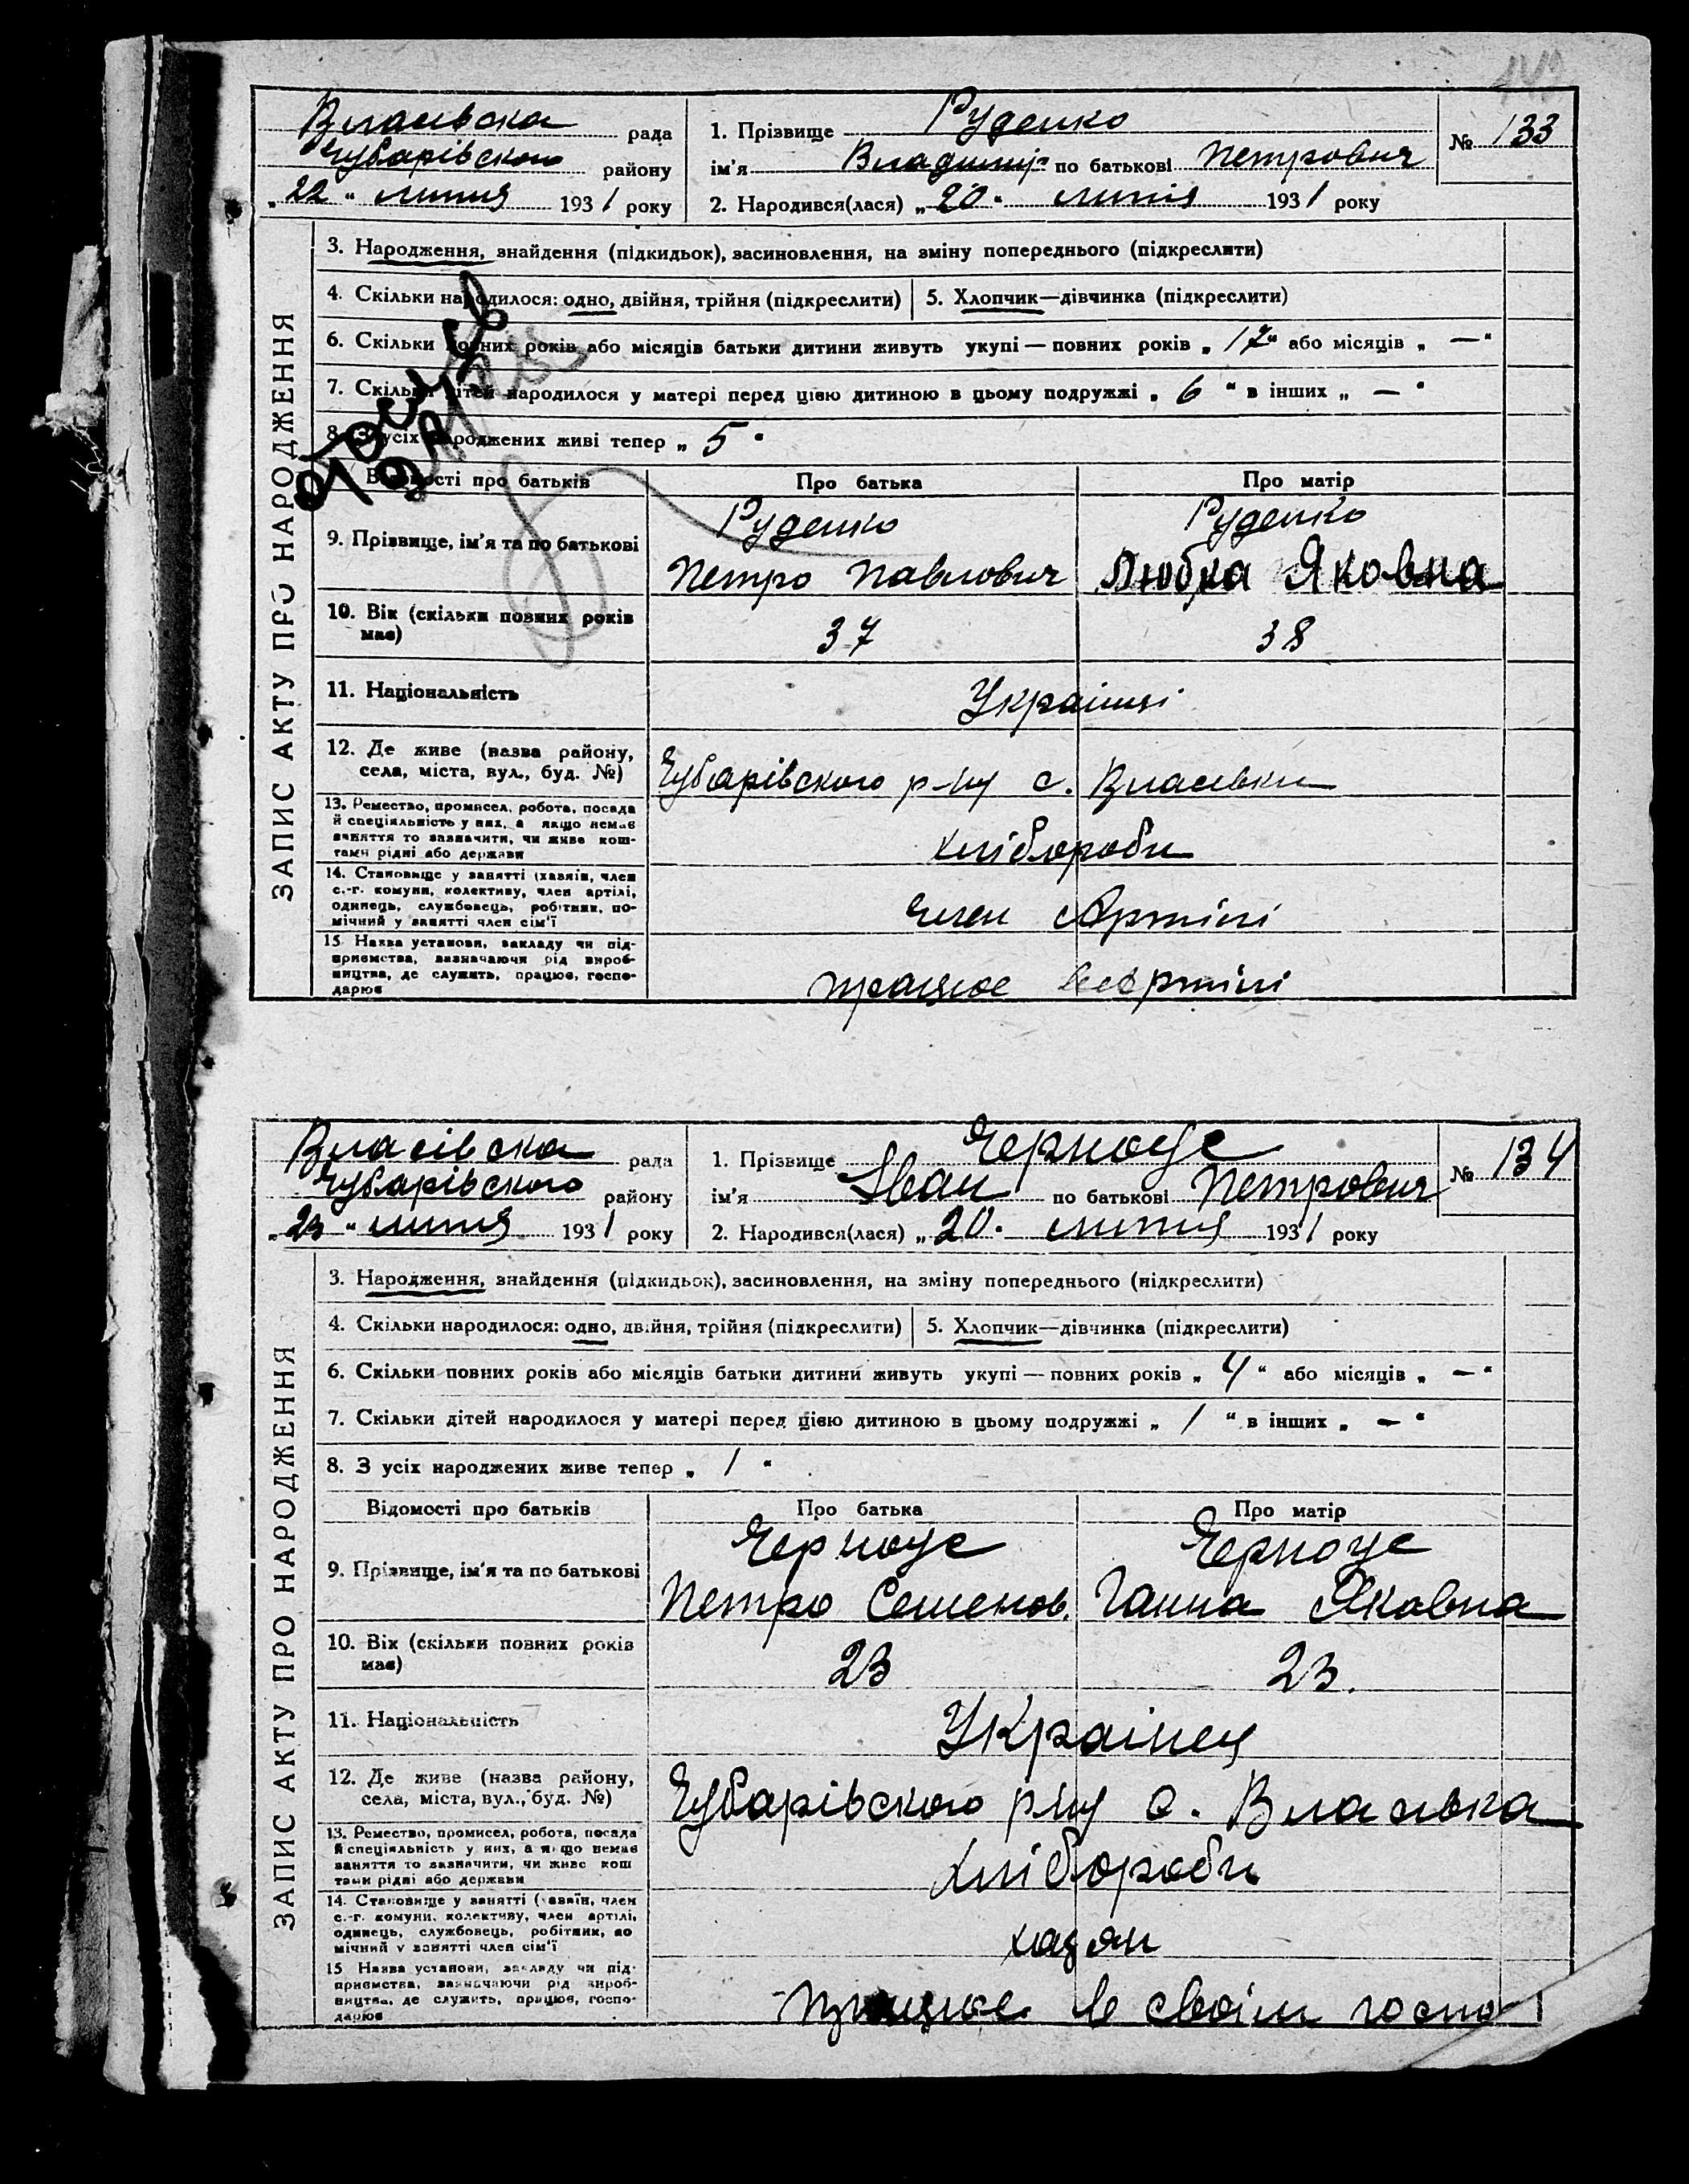 Власівська рада
Чубарівського району
„22“ липня 1931 року
1. Прізвище Руденко
ім'я Владимір по батькові Петрович
2. Народився(лася) „20“ липня 1931 року
№ 133
ЗАПИС АКТУ ПРО НАРОДЖЕННЯ
3. Народження, знайдення (підкидьок), засиновлення, на зміну попереднього (підкреслити)
4. Скільки народилося: одно, двійня, трійня (підкреслити)
5. Хлопчик—дівчинка (підкреслити)
6. Скільки повних років або місяців батьки дитини живуть укупі — повних років „17“ або місяців „—“
7. Скільки дітей народилося у матері перед цією дитиною в цьому подружжі „6“ в інших „—“
8. З усіх народжених живі тепер „5“
Відомості про батьків Про батька Про матір
9. Прізвище, ім'я та по батькові
Руденко
Петро Павлович
Руденко
Любка Яковна
10. Вік (скільки повних років
має)
37 38
11. Національність
Українці
12. Де живе (назва району,
села, міста, вул., буд. №)
Чубарівського р-ну с. Власівки
13. Ремество, промисел, робота, посада
й спеціяльність у них, а якщо немає
заняття то зазначити, чи живе кош-
тами рідні або держави
хлібороби
14. Становище у занятті (хазяїн, член
с.-г. комуни, колективу, член артілі,
одинець, службовець, робітник, по-
мічний у занятті член сім'ї
член Артілі
15 Назва установи, закладу чи під-
приємства, зазначаючи рід вироб-
ництва, де служить, працює, госпо-
дарює
працює в артілі
Власівська рада
Чубарівського району
„23“ липня 1931 року
1. Прізвище Черноус
ім'я Іван по батькові Петрович
2. Народився(лася) „20“ липня 1931 року
№ 134
ЗАПИС АКТУ ПРО НАРОДЖЕННЯ
3. Народження, знайдення (підкидьок), засиновлення, на зміну попереднього (підкреслити)
4. Скільки народилося: одно, двійня, трійня (підкреслити)
5. Хлопчик—дівчинка (підкреслити)
6. Скільки повних років або місяців батьки дитини живуть укупі — повних років „4“ або місяців „—“
7. Скільки дітей народилося у матері перед цією дитиною в цьому подружжі „1“ в інших „—“
8. З усіх народжених живе тепер „1“
Відомості про батьків Про батька Про матір
9. Прізвище, ім'я та по батькові
Черноус
Петро Семенов.
Черноус
Ганна Яковна
10. Вік (скільки повних років
має)
23 23.
11. Національність
Українец
12. Де живе (назва району,
села, міста, вул., буд. №)
Чубарівського р-ну с. Власівка
13. Ремество, промисел, робота, посада
й спеціяльність у них, а якщо немає
заняття то зазначити, чи живе кош
тами рідні або держави
хлібороби
14. Становище у занятті (хазяїн, член
с.-г. комуни, колективу, член артілі,
одинець, службовець, робітник, по
мічний у занятті член сім'ї
хазяін
15 Назва установи, закладу чи під-
приємства, зазначаючи рід вироб-
ництва, де служить, працює, госпо-
дарює
працює в своїм госпо